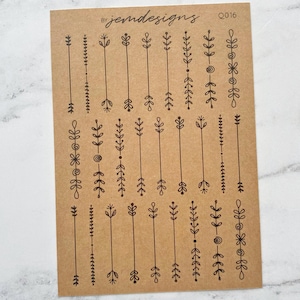 by jemdesigns Q016